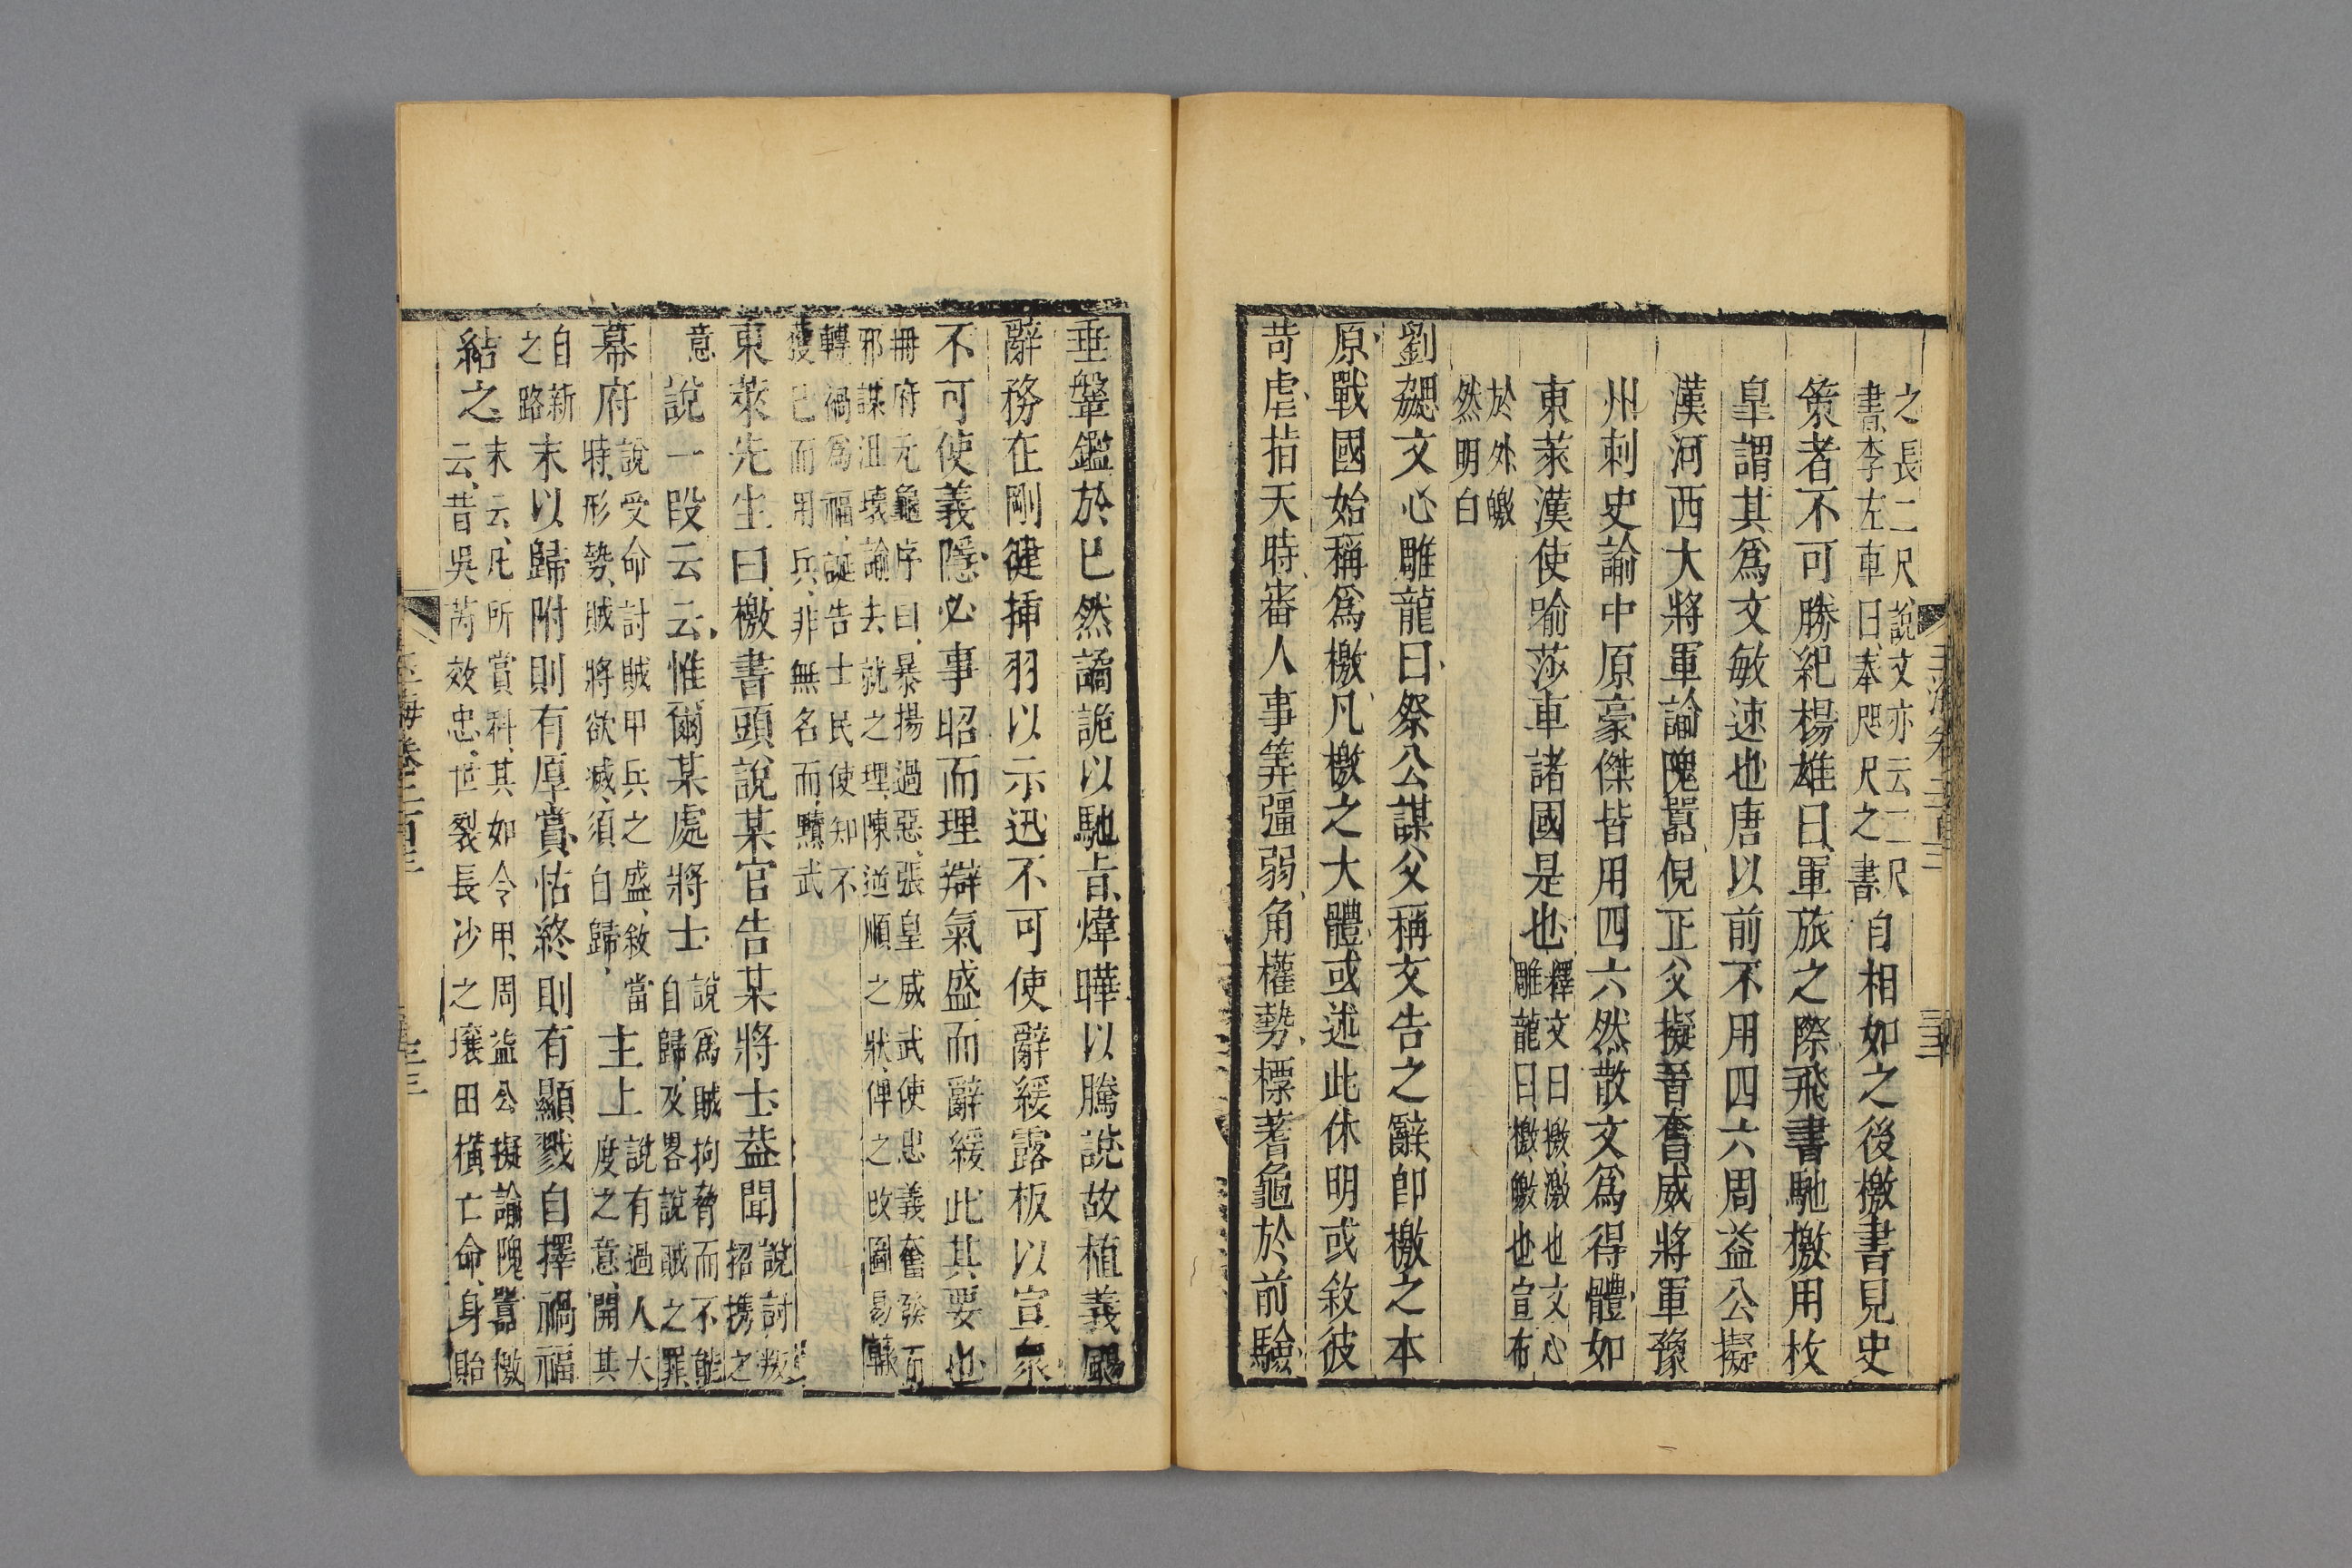 之長二尺說文亦云二尺
書李左車曰奉咫尺之書
自相如之後檄書見史
策者不可勝紀楊雄曰軍旅之際飛書馳檄用枚
皐謂其爲文敏速也唐以前不用四六周益公擬
漢河西大將軍諭隗囂倪正父擬晉奮威將軍豫
州刺史諭中原豪傑皆用四六然散文爲得體如
東萊漢使喻莎車諸國是也
釋文曰檄激也文心
雕龍曰檄皦也宣布
於外皦
然明白
劉勰文心雕龍曰祭公謀父稱文告之辭卽檄之本
原戰國始稱爲檄凡檄之大體或述此休明或敘彼
苛虐指天時審人事筭彊弱角權勢標蓍龜於前驗
垂鞶鑑於已然譎詭以馳旨煒曄以騰說故植義颺
辭務在剛健揷羽以示迅不可使辭緩露板以宣衆
不可使義隱必事昭而理辯氣盛而辭緩此其要也
冊府元龜序曰暴揚過惡張皇威武使忠義奮發而
邪謀沮壞諭去就之理陳逆順之狀俾之改圖易轍
轉禍爲福誕告士民使知不
獲已而用兵非無名而黷武
東萊先生曰檄書頭說某官告某將士葢聞
說討叛
招携之
意
說一段云云惟爾某處將士
說爲賊拘脅而不能
自歸及畧說賊之罪
幕府
說受命討賊甲兵之盛敘當
時形勢賊將欲滅須白歸
主上
說有過人大
度之意開其
自新
之路
末以歸附則有厚賞怙終則有顯戮自擇禍福
結之
末云凡所賞科其如令甲周益公擬諭隗囂檄
云昔吳芮效忠世裂長沙之壤田橫亡命身貽